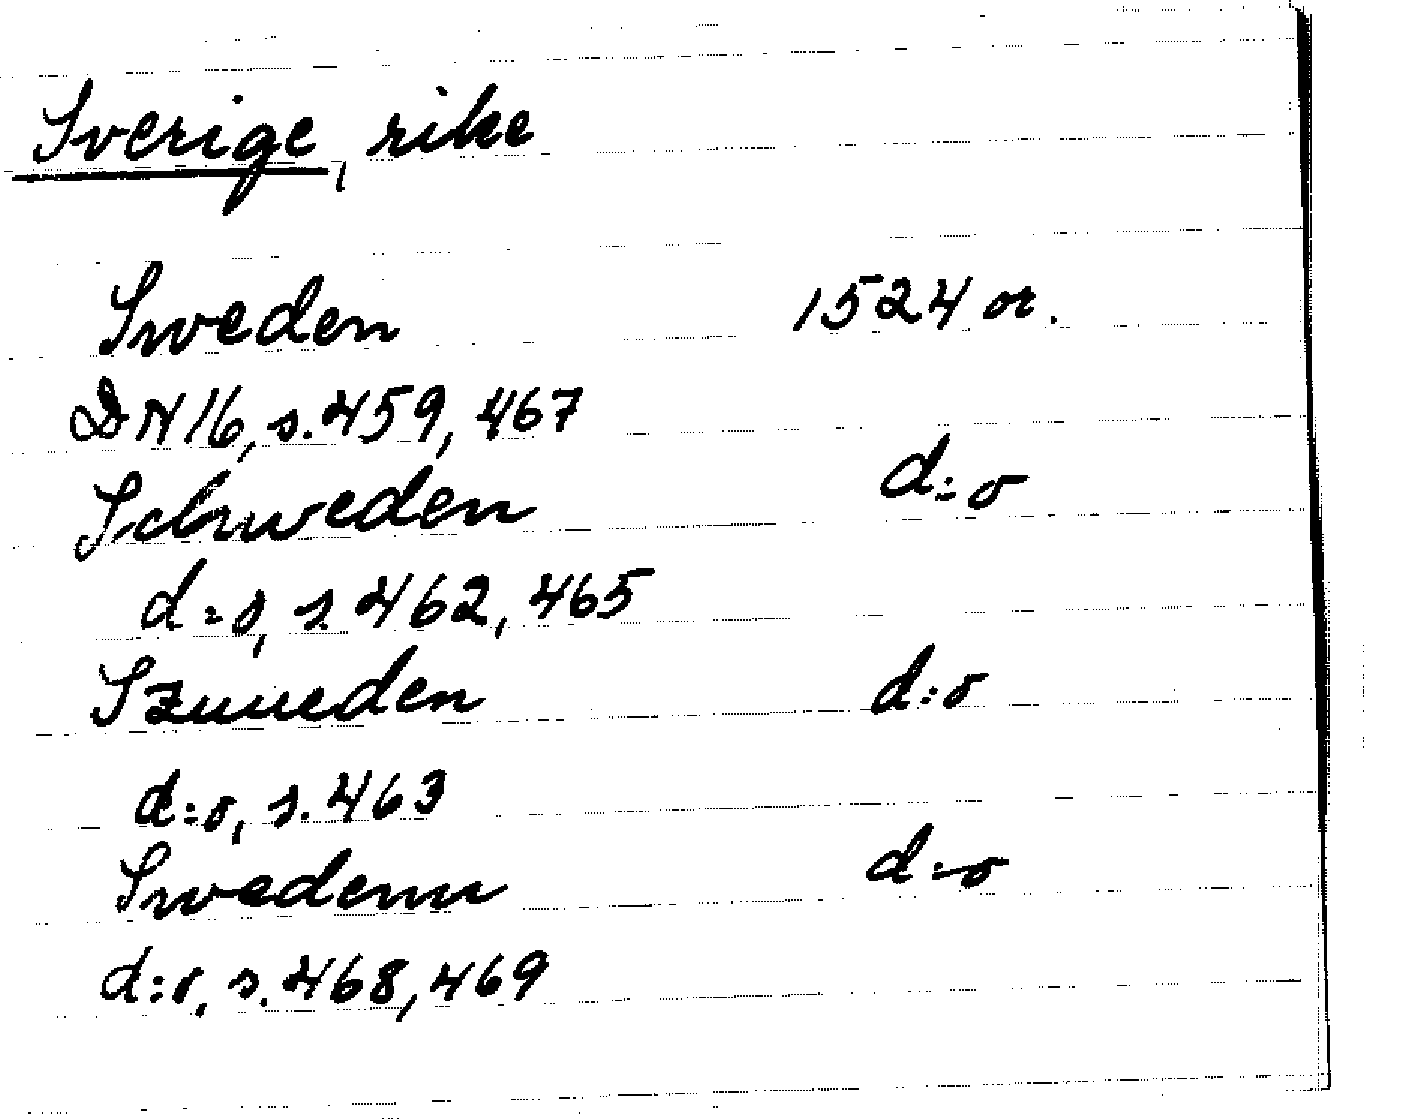 Sverige, rike
Sweden 1524 or.
DN 16, s. 459, 467
Schweden d:o
d:o, s. 462, 465
Szuueden d:o
d:o, s. 463
Swedenn d:o
d:o, s. 468, 469